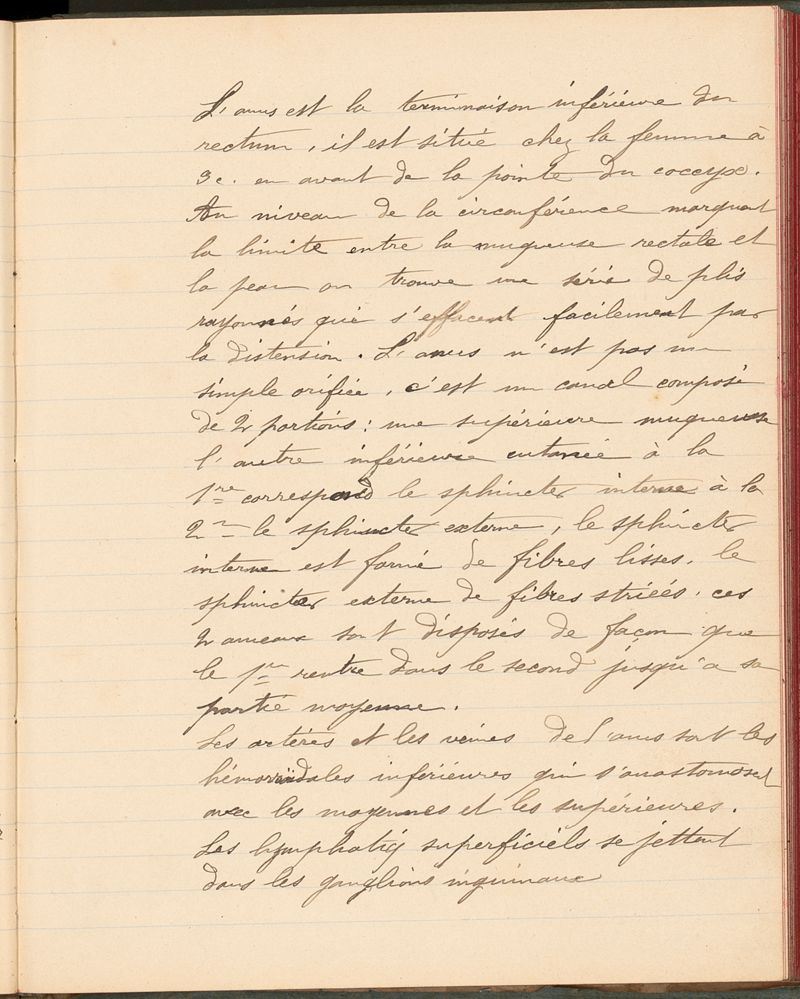 L'anus est la terminaison inférieure du
rectum, il est situé chez la femme à
3c. en avant de la pointe du coccyx.
Au niveau de la circonférence marquant
la limite entre la muqueuse rectale et
la peau on trouve une série de plis
rayonnés qui s'effacent facilement par
la distension. L'anus n'est pas un
simple orifice, c'est un canal composé
de 2 portions: une supérieure muqueuse
l'autre inférieure cutanée à la
1re correspond le sphincter interne à la
2e le sphincter externe, le sphincter
interne est formé de fibres lisses. le
sphincter externe de fibres striées. ces
2 anneaux sont disposés de façon que
le 1er rentre dans le second jusqu'a sa
partie moyenne.
Les artères et les veines de l'anus sont les
hémorroïdales inférieures qui s'anastomosent
avec les moyennes et les supérieures.
Les lymphatiq superficiels se jettent
dans les ganglions inguinaux